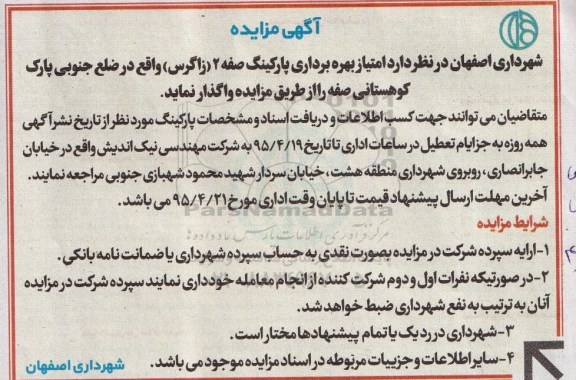 آگهی مزایده
شهرداری اصفهان در نظر دارد امتیاز بهره برداری پارکینگ صفه ۲ (زاگرس) واقع در ضلع جنوبی پارک
کوهستانی صفه را از طریق مزایده واگذار نماید.
متقاضیان می توانند جهت کسب اطلاعات و دریافت اسناد و مشخصات پارکینگ مورد نظر از تاریخ نشر آگهی
همه روزه به جز ایام تعطیل در ساعات اداری تا تاریخ ۹۵/۴/۱۹ به شرکت مهندسی نیک اندیش واقع در خیابان
جابر انصاری، روبروی شهرداری منطقه هشت، خیابان سردار شهید محمود شهبازی جنوبی مراجعه نمایند.
آخرین مهلت ارسال پیشنهاد قیمت تا پایان وقت اداری مورخ ۹۵/۴/۲۱ می باشد.
ParsNamadData
شرایط مزایده
۱-ارایه سپرده شرکت در مزایده بصورت نقدی به حساب سپرده شهرداری یا ضمانت نامه بانکی.
۲-در صورتیکه نفرات اول و دوم شرکت کننده از انجام معامله خودداری نمایند سپرده شرکت در مزایده
آنان به ترتیب به نفع شهرداری ضبط خواهد شد.
۳-شهرداری در رد یک یا تمام پیشنهادها مختار است.
۴-سایر اطلاعات و جزییات مربوطه در اسناد مزایده موجود می باشد.
شهرداری اصفهان